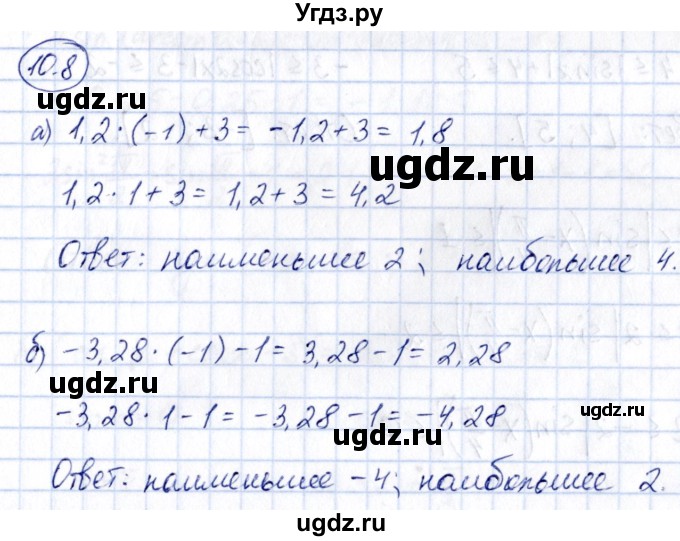 Угдз.ру
10.8
ugdz.ru
а) 1,2·(-1)+3= -1,2+3= 1,8
ugdz.ru
ugdz.ru
1,2·1+3= 1,2+3= 4,2
Ответ: наименьшее 2; наибольшее 4.
ugdz.ru
б) -3,28·(-1)-1= 3,28-1= 2,28
ugdz.ru
-3,28·1-1= -3,28-1= -4,28
ugdz.ru
ugdz.ru
Ответ: наименьшее -4; наибольшее 2.
ugdz.ru
ugdz.ru